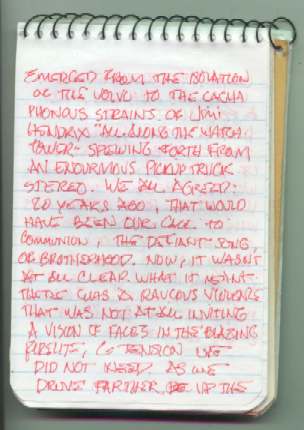 EMERGED FROM THE ISOLATION
OF THE VOLVO TO THE CACHA
PHONOUS STRAINS OF JIMI
HENDRIX "ALL ALONG THE WATCH
TOWER" SPEWING FORTH FROM
AN ENOURMOUS PICKUP TRUCK
STEREO. WE ALL AGREED:
20 YEARS AGO, THAT WOULD
HAVE BEEN OUR CALL TO
COMMUNION, THE DEFIANT SONG
OF BROTHERHOOD. NOW, IT WASN'T
AT ALL CLEAR WHAT IT MEANT.
THERE WAS A RAUCOUS VIOLENCE
THAT WAS NOT AT ALL INVITING.
A VISION OF FACES IN THE BLAZING
TENSION WE
DID NOT NEED. AS WE
DROVE FARTHER UP THE